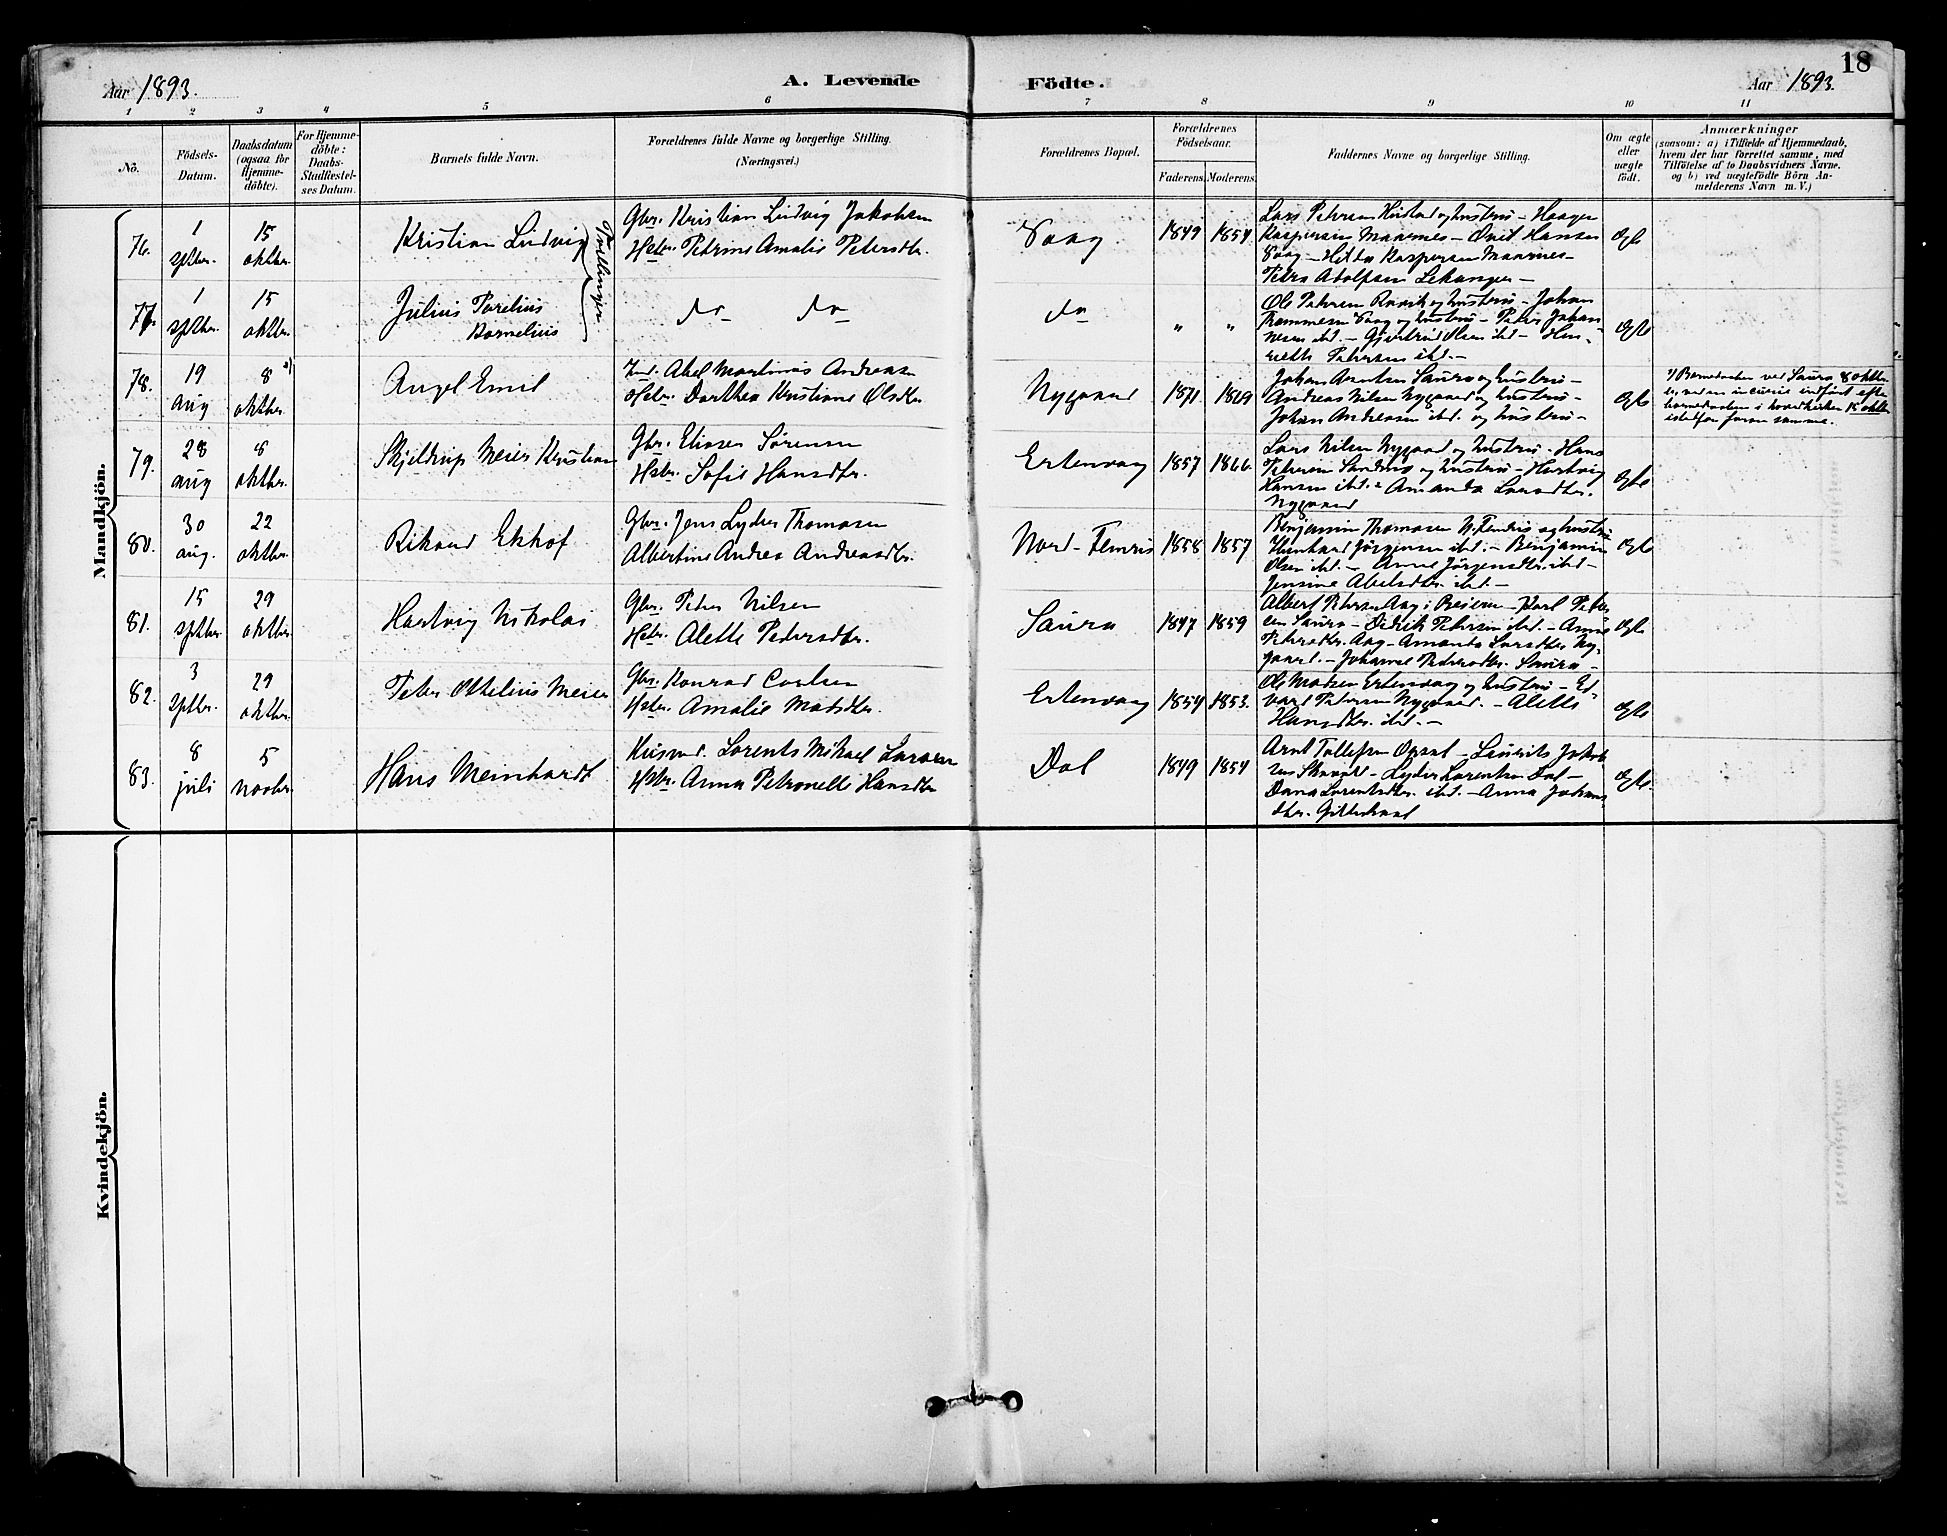 18
Aar 1893.
A. Levende Födte.
Aar 1893.
1 2 3 4 5 6 7 8 9 10 11
Nô.
Födsels-Datum.
Daabsdatum (ogsaa för Hjemmedöbte).
For Hjemmedöbte: Daabs-Stadfæstelses Datum.
Barnets fulde Navn.
Forældrenes fulde Navne og borgerlige Stilling.
(Næringsvei.)
Forældrenes Bopæl.
Forældrenes Födselsaar.
Faderens. Moderens.
Faddernes Navne og borgerlige Stilling.
Om ægte eller uægte födt.
Anmærkninger
(saasom: a) i Tilfælde af Hjemmedaab, hvem der har forrettet samme, med Tilföielse af to Daabsvidners Navne. og b) ved uægtefödte Börn Anmelderens Navn m. V.)
Mandkjön.
76. 1 sptbr. 15 oktbr. Kristian Ludvig
Tvillinger
Gbr. Kristian Ludvig Jakobsen
Hstr. Petrine Amalie Petersdtr.
Vaag 1849 1854
Lars Petersen Hustad og hustru – Haagen
Kaspersen Maarnes – Hansen
Vaag – Hilda Kaspersen Maarnes –
Petra Adolfsen Lekanger –
ægte
77. 1 sptbr. 15 oktbr. Julius Parelius
Kornelius
do do
do " "
Ole Petersen og hustru – Johan
Vaag og hustru – Johan-
nesen ibd. – Gjertrud Olsen ibd. – Hen-
riette Petersen ibd. –
ægte
78. 19 aug 8 oktbr. a) Angel Emil
Ind. Abel Martinus Andreasen
Hstr. Dorthea Kristiane Olsdtr.
Nygaard 1871 1869
Johan Arntsen Saura og hustru –
Andreas Nilsen Nygaard og hustru –
Johan Andreasen ibd. og hustru –
ægte
a) Barnedaaben ved Saura 8 oktbr.
er ved en incurie indført efter
barnedaaben i hovedkirken 15 oktbr.
istedfor foran samme.
79. 28 aug 8 oktbr. Skjeldrup Meier Kristian
Gbr. Eliasen Sørensen
Hstr. Sofie Hansdtr.
Ertenvaag 1857 1866.
Lars Nilsen Nygaard og hustru – Hans
Petersen og hustru – Hartvig
Hansen ibd. – Amanda Larsdtr.
Nygaard
ægte
80. 30 aug. 22 oktbr. Rikard Ekhof
Gbr. Jens Lyder Thomasen
Albertine Andrea Andreasdtr.
Nord-Femris 1858 1857
Benjamin Thomasen N. Femris og hustru
Jørgensen ibd. – Benjamin
Olsen ibd. – Anne Jørgensdtr. ibd –
Jensine Abelsdtr. ibd. –
ægte
81. 15 sptbr. 29 oktbr. Hartvig Nikolai
Gbr. Peter Nilsen
Hstr. Alette Pedersdtr.
Saura 1847 1859
Albert Petersen Aag i Beieren – Karl Peter-
sen Saura – Didrik Petersen ibd. – Anne
Petersdtr. Aag – Amanda Larsdtr. Ny-
gaard. – Johanne Pedersdtr. Saura –
ægte
82. 3 sptbr. 29 oktbr. Peter Ottelius Meier
Gbr. Konrad Carlsen
Hstr. Amalie Madsdtr.
Ertenvaag 1854 1853.
Ole Madsen Ertenvaag og hustru – Ed-
vard Petersen Nygaard. – Alette
Hansdtr. ibd. –
ægte
83. 8 juli 5 novbr. Hans Meinhardt
Husmd. Lorents Mikael Larsen
Hstr. Anna Petronelle Hansdtr
Dal 1849 1854
Arnt Tollefsen – Laurits Jakob-
sen – Lyder Lorentsen Dal –
Dana Lorentsdtr. ibd. – Anna Johans-
dtr. Gildeskaal
ægte.
Kvindekjön.